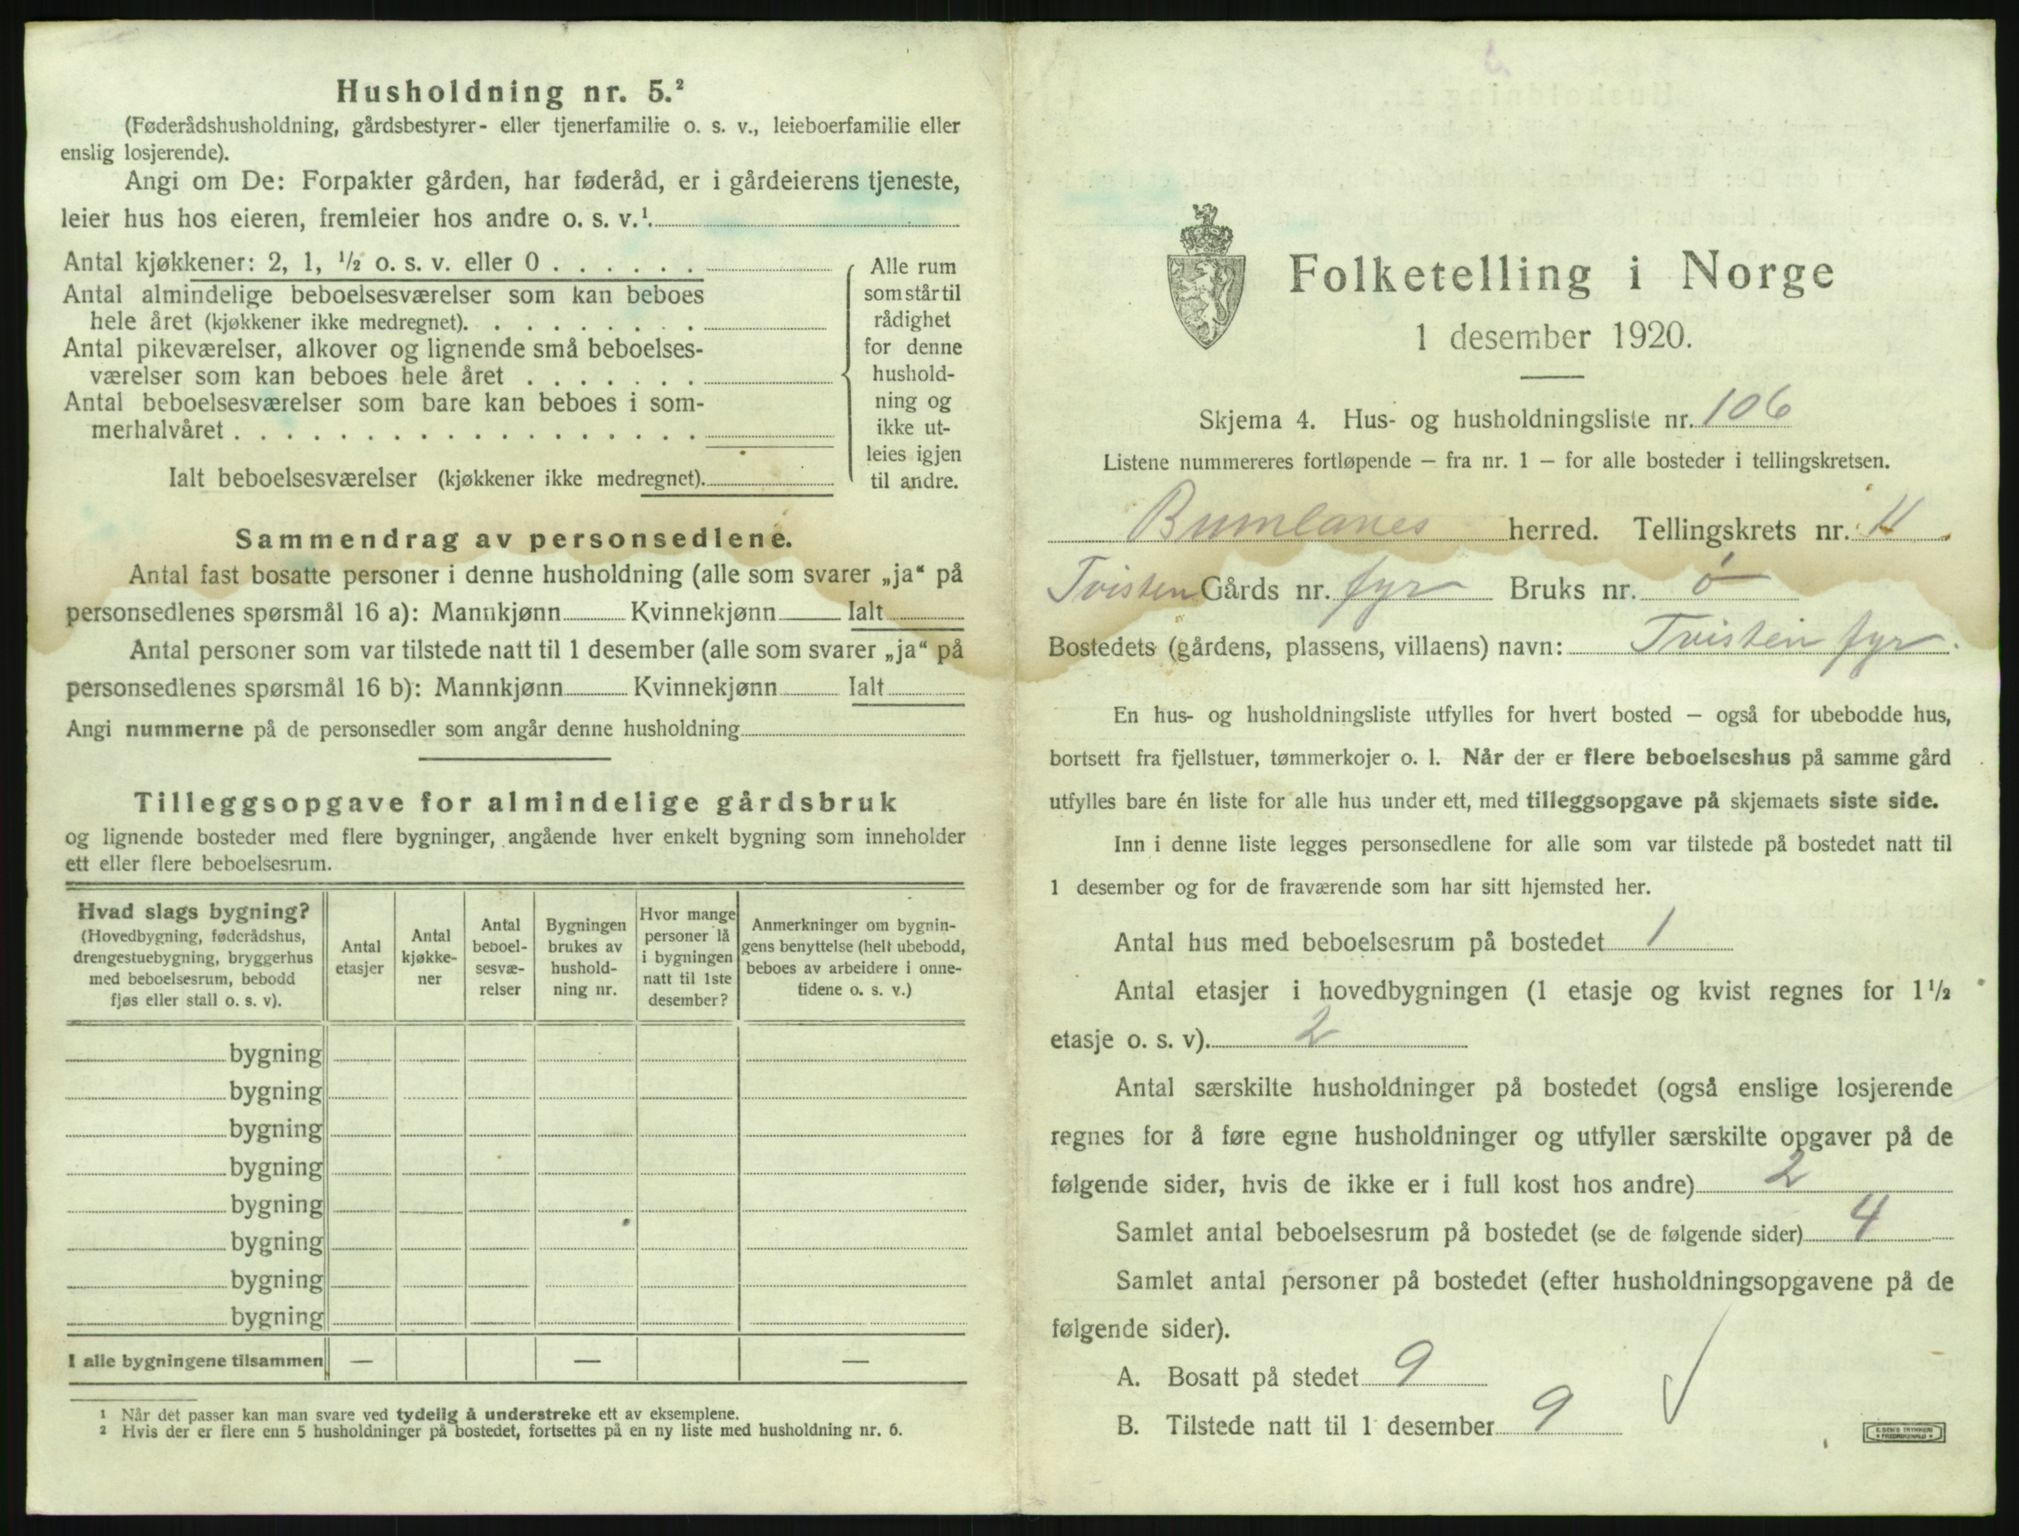 Husholdning nr. 5.²
(Føderådshusholdning, gårdsbestyrer- eller tjenerfamilie o. s. v., leieboerfamilie eller
enslig losjerende).
Angi om De: Forpakter gården, har føderåd, er i gårdeierens tjeneste,
leier hus hos eieren, fremleier hos andre o. s. v.¹
Antal kjøkkener: 2, 1, ½ o. s. v. eller 0
Antal almindelige beboelsesværelser som kan beboes
hele året (kjøkkener ikke medregnet).
Antal pikeværelser, alkover og lignende små beboelses-
værelser som kan beboes hele året
Antal beboelsesværelser som bare kan beboes i som-
merhalvåret
Ialt beboelsesværelser (kjøkkener ikke medregnet).
Alle rum
som står til
rådighet
for denne
hushold-
ning og
ikke ut-
leies igjen
til andre.
Sammendrag av personsedlene.
Antal fast bosatte personer i denne husholdning (alle som svarer „ja“ på
personsedlenes spørsmål 16 a): Mannkjønn Kvinnekjønn Ialt
Antal personer som var tilstede natt til 1 desember (alle som svarer „ja“ på
personsedlenes spørsmål 16 b): Mannkjønn Kvinnekjønn Ialt
Angi nummerne på de personsedler som angår denne husholdning
Tilleggsopgave for almindelige gårdsbruk
og lignende bosteder med flere bygninger, angående hver enkelt bygning som inneholder
ett eller flere beboelsesrum.
Hvad slags bygning?
(Hovedbygning, føderådshus,
drengestuebygning, bryggerhus
med beboelsesrum, bebodd
fjøs eller stall o. s. v).
Antal
etasjer
Antal
kjøkke-
ner
Antal
beboel-
sesvæ-
relser
Bygningen
brukes av
hushold-
ning nr.
Hvor mange
personer lå
i bygningen
natt til 1ste
desember?
Anmerkninger om bygnin-
gens benyttelse (helt ubebodd,
beboes av arbeidere i onne-
tidene o. s. v.)
bygning
bygning
bygning
bygning
bygning
bygning
bygning
bygning
I alle bygningene tilsammen — — —
¹ Når det passer kan man svare ved tydelig å understreke ett av eksemplene.
² Hvis der er flere enn 5 husholdninger på bostedet, fortsettes på en ny liste med husholdning nr. 6.
Folketelling i Norge
1 desember 1920.
Skjema 4. Hus- og husholdningsliste nr. 106
Listene nummereres fortløpende – fra nr. 1 – for alle bosteder i tellingskretsen.
Bumlanes herred. Tellingskrets nr. 11
Tvisten Gårds nr. fyr Bruks nr. ø
Bostedets (gårdens, plassens, villaens) navn: Tvistein fyr.
En hus- og husholdningsliste utfylles for hvert bosted – også for ubebodde hus,
bortsett fra fjellstuer, tømmerkojer o. l. Når der er flere beboelseshus på samme gård
utfylles bare én liste for alle hus under ett, med tilleggsopgave på skjemaets siste side.
Inn i denne liste legges personsedlene for alle som var tilstede på bostedet natt til
1 desember og for de fraværende som har sitt hjemsted her.
Antal hus med beboelsesrum på bostedet 1
Antal etasjer i hovedbygningen (1 etasje og kvist regnes for 1½
etasje o. s. v). 2
Antal særskilte husholdninger på bostedet (også enslige losjerende
regnes for å føre egne husholdninger og utfyller særskilte opgaver på de
følgende sider, hvis de ikke er i full kost hos andre) 2
Samlet antal beboelsesrum på bostedet (se de følgende sider) 4
Samlet antal personer på bostedet (efter husholdningsopgavene på de
følgende sider).
A. Bosatt på stedet 9
B. Tilstede natt til 1 desember 9